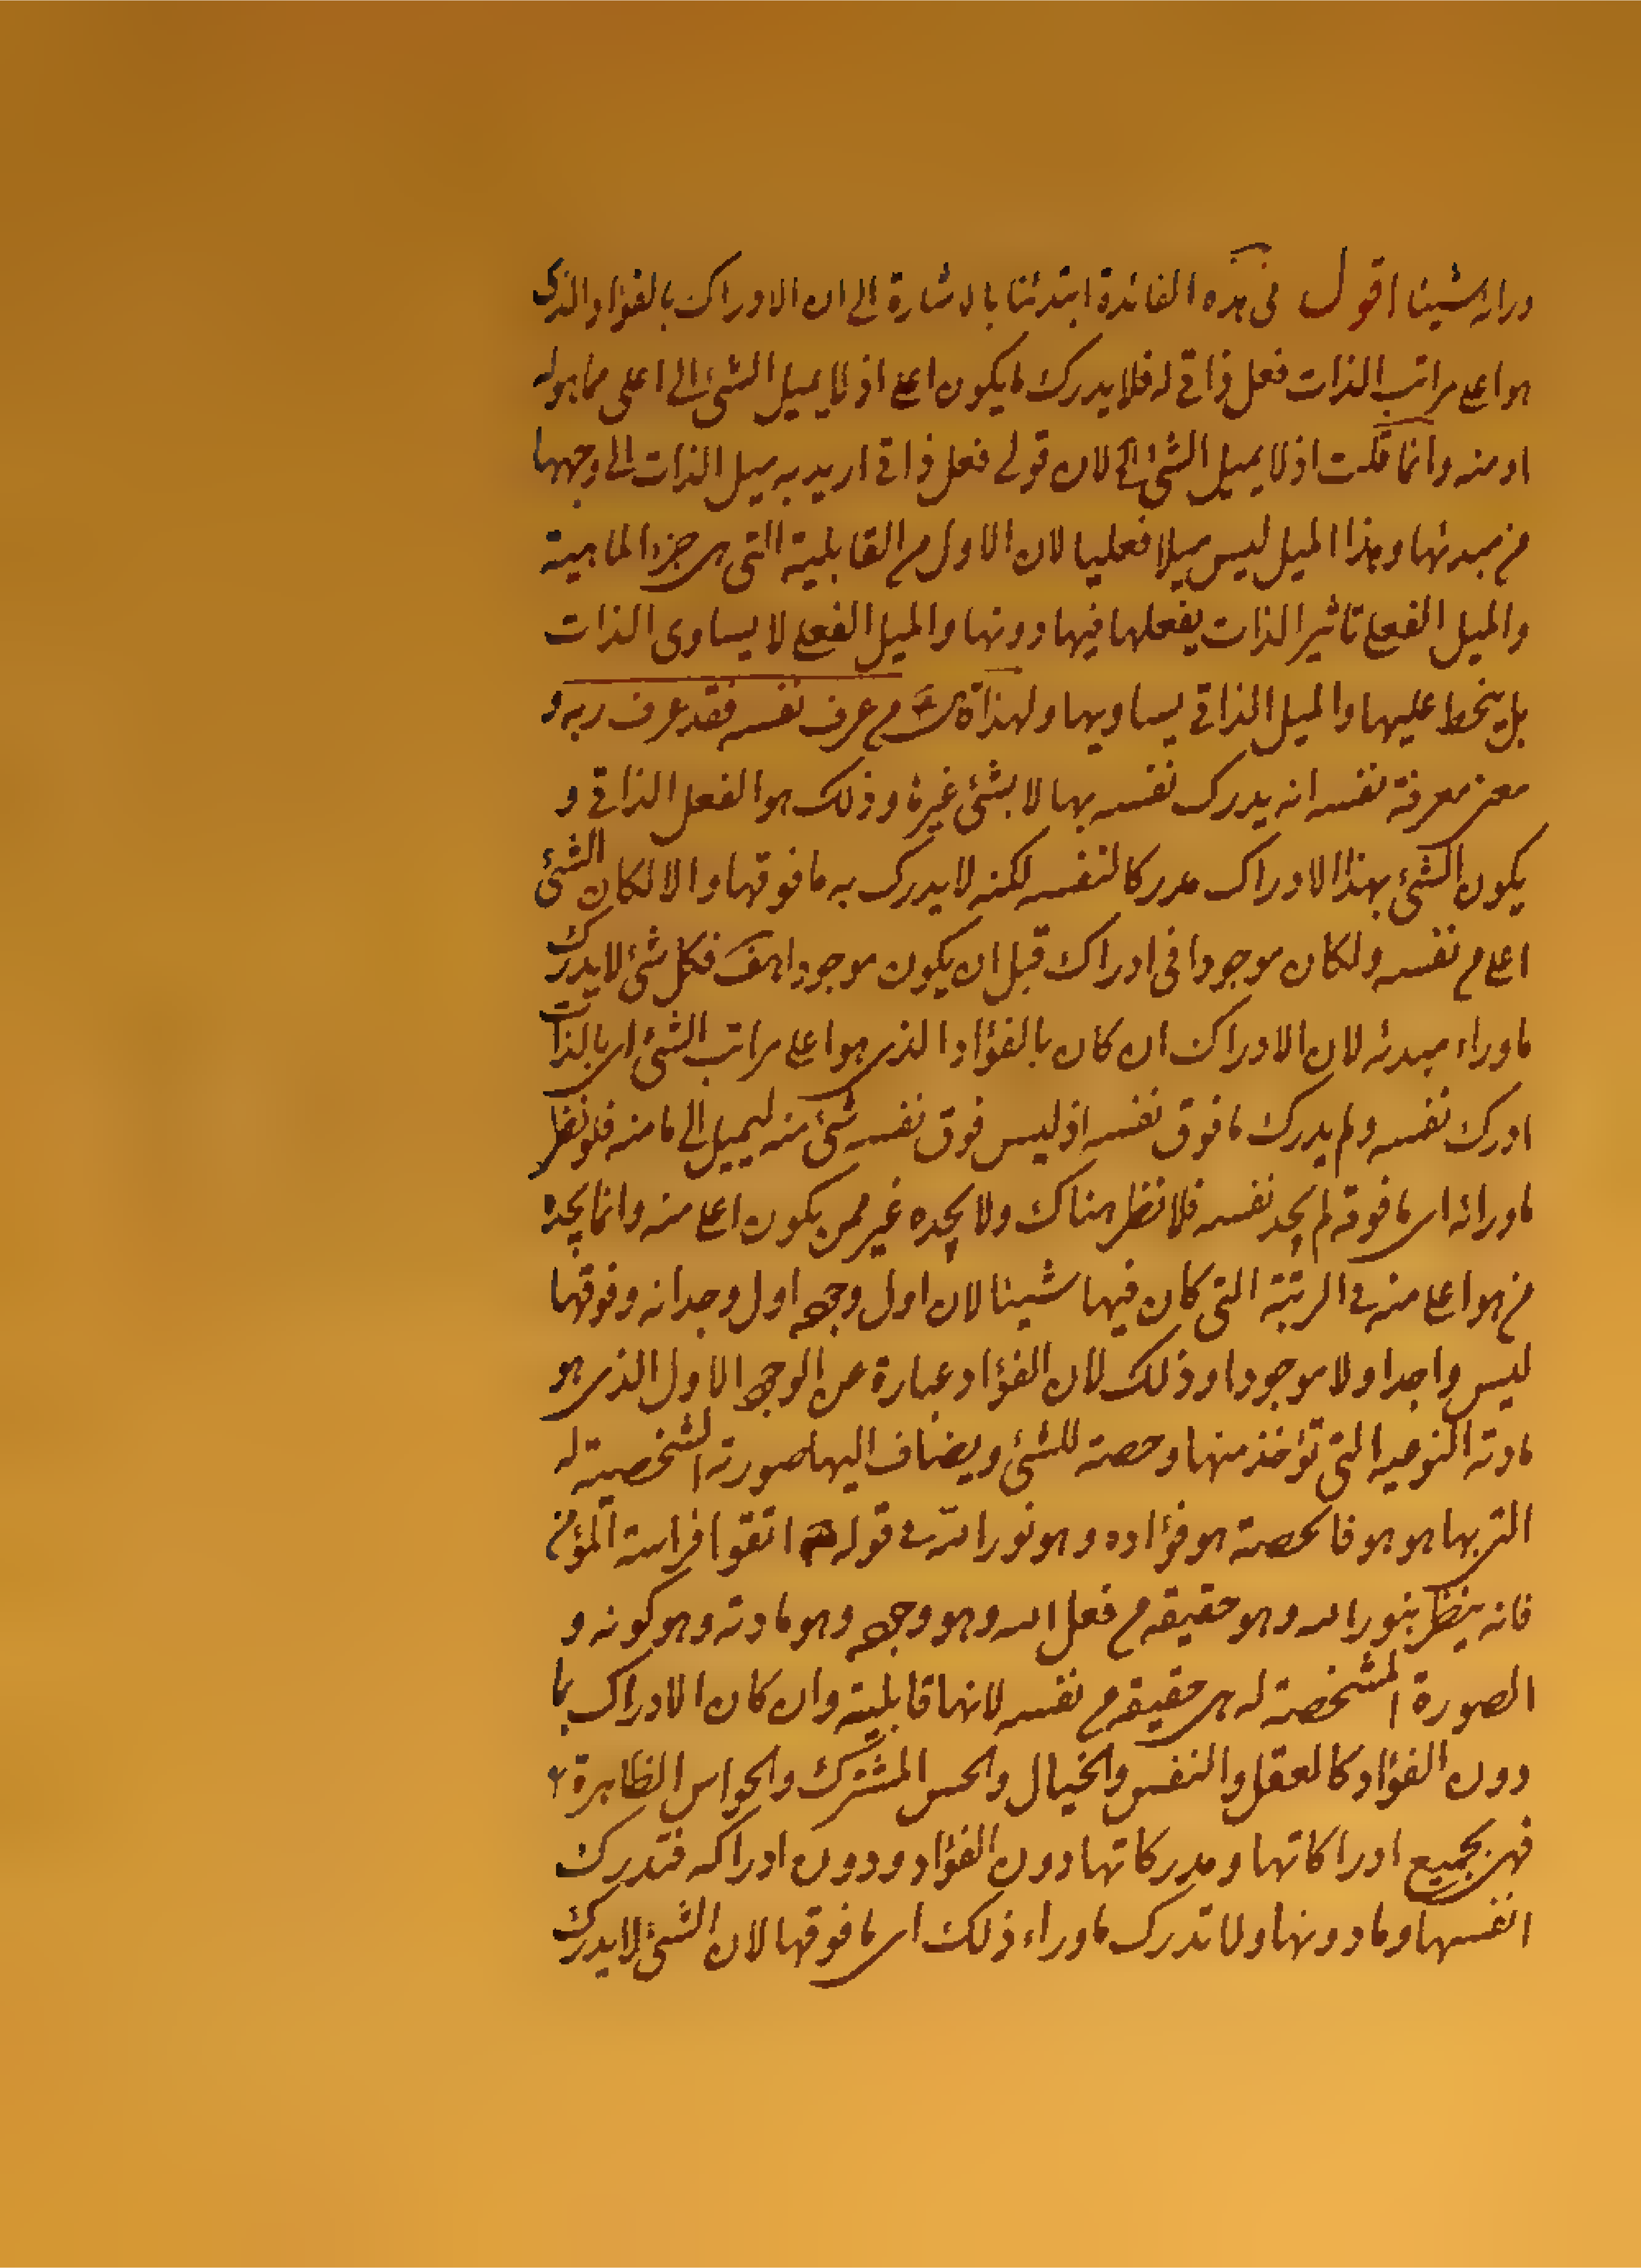 وراءه شيئا اقول فى هذه الفائدة ابتدئنا بالاشارة الى ان الادراك بالفؤاد الذى
هو اعلى مراتب الذات فعل ذاتى له فلا يدرك ما يكون اعلى اذ لا يميل الشئ الى اعلى مما هو له
او منه وانما قلت اذ لا يميل الشئ الخ لان قولى فعل ذاتى اريد به ميل الذات الى وجهها
من مبدئها وهذا الميل ليس ميلا فعليا لان الاول من القابلية التى هى جزء الماهية
والميل الفعلى تاثير الذات بفعلها فيما دونها والميل الفعلى لا يساوى الذات
بل ينحط عليها والميل الذاتى يساويها ولهذا قال من عرف نفسه فقد عرف ربه و
معنى معرفة نفسه انه يدرك نفسه بها لا بشئ غيرها وذلك هو الفعل الذاتى و
يكون الشئ بهذا الادراك مدركا لنفسه لكنه لا يدرك به ما فوقها والا لكان الشئ
اعلى من نفسه ولكان موجودا فى ادراك قبل ان يكون موجودا هف فكل شئ لا يدرك
ما وراء مبدئه لان الادراك ان كان بالفؤاد الذى هو اعلى مراتب الشئ اى بالذات
ادرك نفسه ولم يدرك ما فوق نفسه اذ ليس فوق نفسه شئ منه ليميل الى ما منه فلو نظر
ما ورائه اى ما فوقه لم يجد نفسه فلا نظر هناك ولا يجده غير ممن يكون اعلى منه وانما يجده
من هو اعلى منه فى الرتبة التى كان فيها شيئا لان اول وجوده اول وجدانه وفوقها
ليس واجدا ولا موجودا وذلك لان الفؤاد عبارة عن الوجود الاول الذى هو
مادته النوعيه التى تؤخذ منها وحصة للشئ ويضاف اليها صورته الشخصية له
التى بها هو هو فالحصة هو فؤاده وهو نور الله فى قوله اتقوا فراسة المؤمن
فانه ينظر بنور الله وهو حقيقه من فعل الله وهو وجوده وهو مادته وهو كونه و
الصورة المشخصة له هى حقيقه من نفسه لانها قابلية وان كان الادراك بما
دون الفؤاد كالعقل والنفس والخيال والحس المشترك والحواس الظاهرة
فهى بجميع ادراكاتها ومدركاتها دون الفؤاد ودون ادراكه فتدرك
انفسها وما دونها ولا تدرك ما وراء ذلك اى ما فوقها لان الشئ لا يدرك